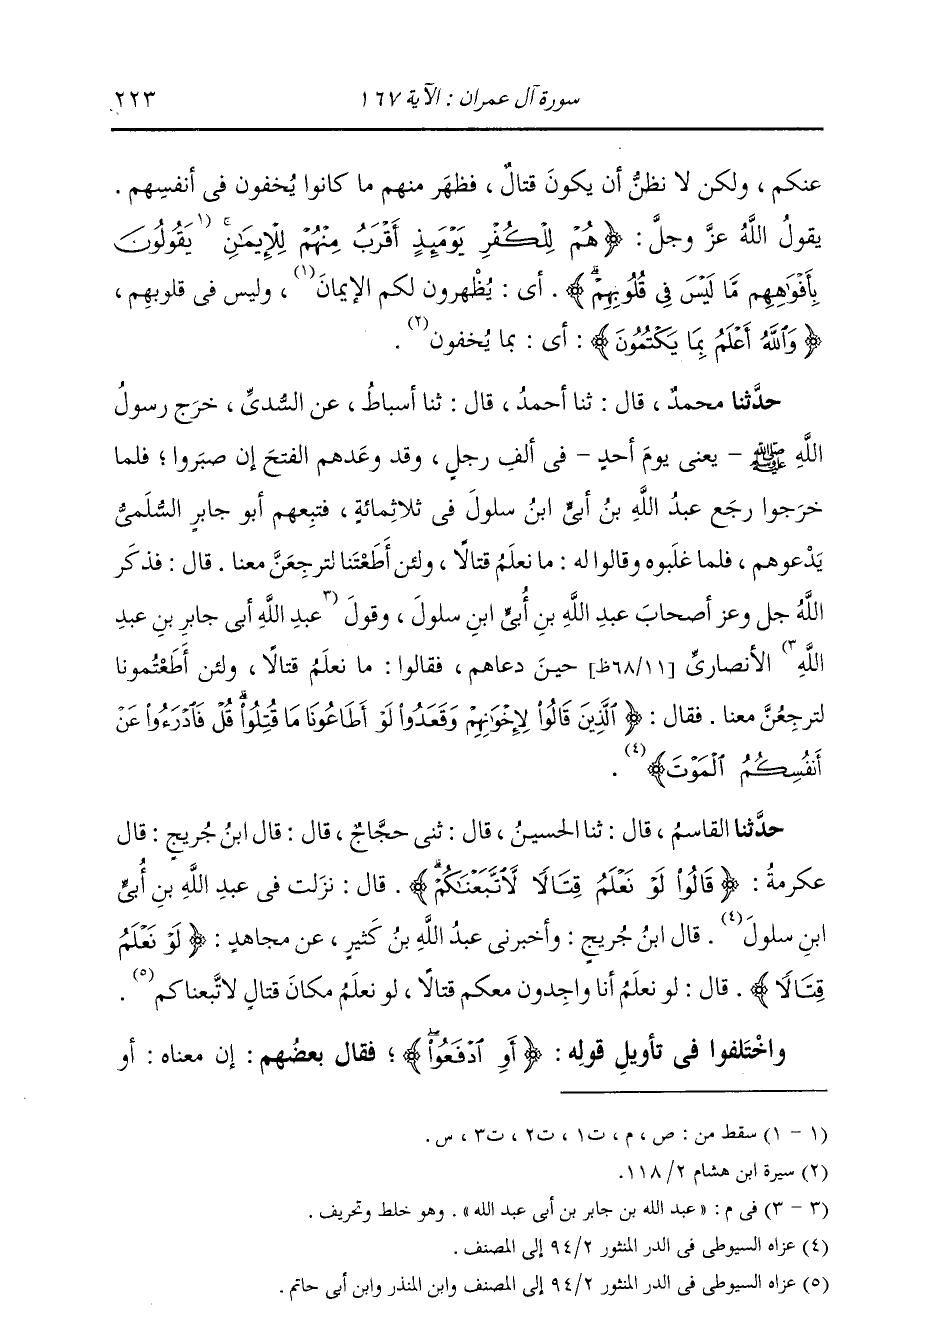 سورة آل عمران : الآية ١٦٧ ٢٢٣
عنكم ، ولكن لا نظنُّ أن يكونَ قتالٌ ، فظهَر منهم ما كانوا يُخفون فى أنفسِهم .
يقولُ اللَّهُ عزَّ وجلَّ : ﴿ هُمْ لِلْكُفْرِ يَوْمَئِذٍ أَقْرَبُ مِنْهُمْ لِلْإِيمَٰنِۚ (١ يَقُولُونَ
بِأَفْوَٰهِهِم مَّا لَيْسَ فِى قُلُوبِهِمْۗ ﴾ . أى : يُظْهِرون لكم الإيمانَ١) ، وليس فى قلوبِهم ،
﴿ وَٱللَّهُ أَعْلَمُ بِمَا يَكْتُمُونَ ﴾ : أى : بما يُخفون(٢) .
حدَّثنا محمدٌ ، قال : ثنا أحمدُ ، قال : ثنا أسباطُ ، عن السُّدىِّ ، خرَج رسولُ
اللَّهِ ﷺ - يعنى يومَ أحدٍ - فى ألفِ رجلٍ ، وقد وعَدهم الفتحَ إن صبَروا ؛ فلما
خرَجوا رجَع عبدُ اللَّهِ بنُ أُبىٍّ ابنُ سلولَ فى ثلاثِمائةٍ ، فتبِعهم أبو جابرٍ السُّلَمىُّ
يَدْعوهم ، فلما غلَبوه وقالوا له : ما نعلَمُ قتالًا ، ولئن أَطَعْتَنا لترجِعَنَّ معنا . قال : فذكَر
اللَّهُ جل وعز أصحابَ عبدِ اللَّهِ بنِ أُبىٍّ ابنِ سلولَ ، وقولَ (٣ عبدِ اللَّهِ أبى جابرِ بنِ عبدِ
اللَّهِ٣) الأنصارىِّ [٦٨/١١ظ] حينَ دعاهم ، فقالوا : ما نعلَمُ قتالًا ، ولئن أَطَعْتُمونا
لترجِعُنَّ معنا . فقال : ﴿ ٱلَّذِينَ قَالُوا۟ لِإِخْوَٰنِهِمْ وَقَعَدُوا۟ لَوْ أَطَاعُونَا مَا قُتِلُوا۟ۗ قُلْ فَٱدْرَءُوا۟ عَنْ
أَنفُسِكُمُ ٱلْمَوْتَ ﴾(٤) .
حدَّثنا القاسمُ ، قال : ثنا الحسينُ ، قال : ثنى حجَّاجٌ ، قال : قال ابنُ جُريجٍ : قال
عكرمةُ : ﴿ قَالُوا۟ لَوْ نَعْلَمُ قِتَالًا لَّٱتَّبَعْنَٰكُمْۗ ﴾ . قال : نزَلت فى عبدِ اللَّهِ بنِ أُبىٍّ
ابنِ سلولَ(٤) . قال ابنُ جُريجٍ : وأخبرنى عبدُ اللَّهِ بنُ كَثيرٍ ، عن مجاهدٍ : ﴿ لَوْ نَعْلَمُ
قِتَالًا ﴾ . قال : لو نعلَمُ أنا واجِدون معكم قتالًا ، لو نعلَمُ مكانَ قتالٍ لاتَّبعناكم(٥) .
واخْتَلفوا فى تأويلِ قولِه : ﴿ أَوِ ٱدْفَعُوا۟ۖ ﴾ ؛ فقال بعضُهم : إن معناه : أو
(١ - ١) سقط من : ص ، م ، ت١ ، ت٢ ، ت٣ ، س .
(٢) سيرة ابن هشام ٢/ ١١٨.
(٣ - ٣) فى م : « عبد الله بن جابر بن أبى عبد الله » . وهو خلط وتحريف .
(٤) عزاه السيوطى فى الدر المنثور ٩٤/٢ إلى المصنف .
(٥) عزاه السيوطى فى الدر المنثور ٩٤/٢ إلى المصنف وابن المنذر وابن أبى حاتم .